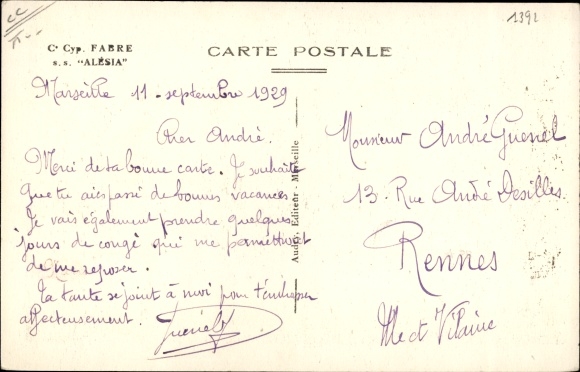 1392
Cie Cyp. FABRE
s.s. "ALÉSIA"
CARTE POSTALE
Marseille 11 - septembre 1929
Cher André.
Merci de ta bonne carte. Je souhaite
que tu aies passé de bonnes vacances.
Je vais également prendre quelques
jours de congé qui me permettront
de me reposer.
Ta tante se joint à moi pour t'embrasser
affectueusement.
Audry, Editeur - Marseille
Monsieur André Guenel
13 - Rue André Desilles
Rennes
Ille et Vilaine